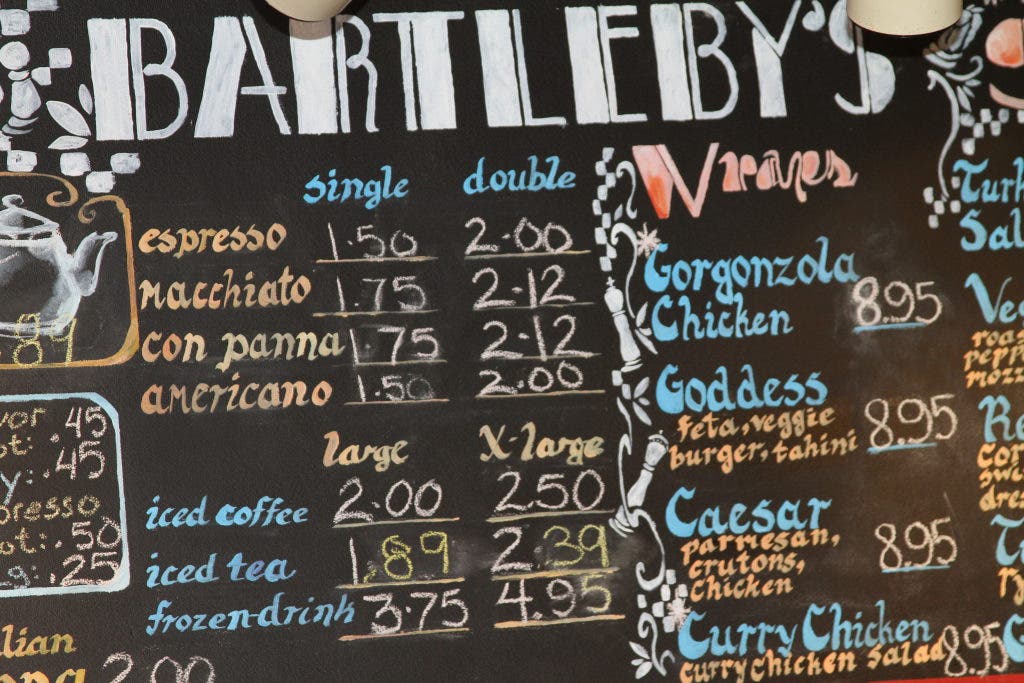 BARTLEBY'S
single double
espresso 1.50 2.00
macchiato 1.75 2.12
con panna 1.75 2.12
americano 1.50 2.00
large X-large
iced coffee 2.00 2.50
iced tea 1.89 2.39
frozen drink 3.75 4.95
89
.45
.45
.50
.25
2.00
Wraps
Gorgonzola
Chicken 8.95
Goddess
feta, veggie
burger, tahini 8.95
Caesar
parmesan,
crutons,
chicken 8.95
Curry Chicken
curry chicken salad 8.95